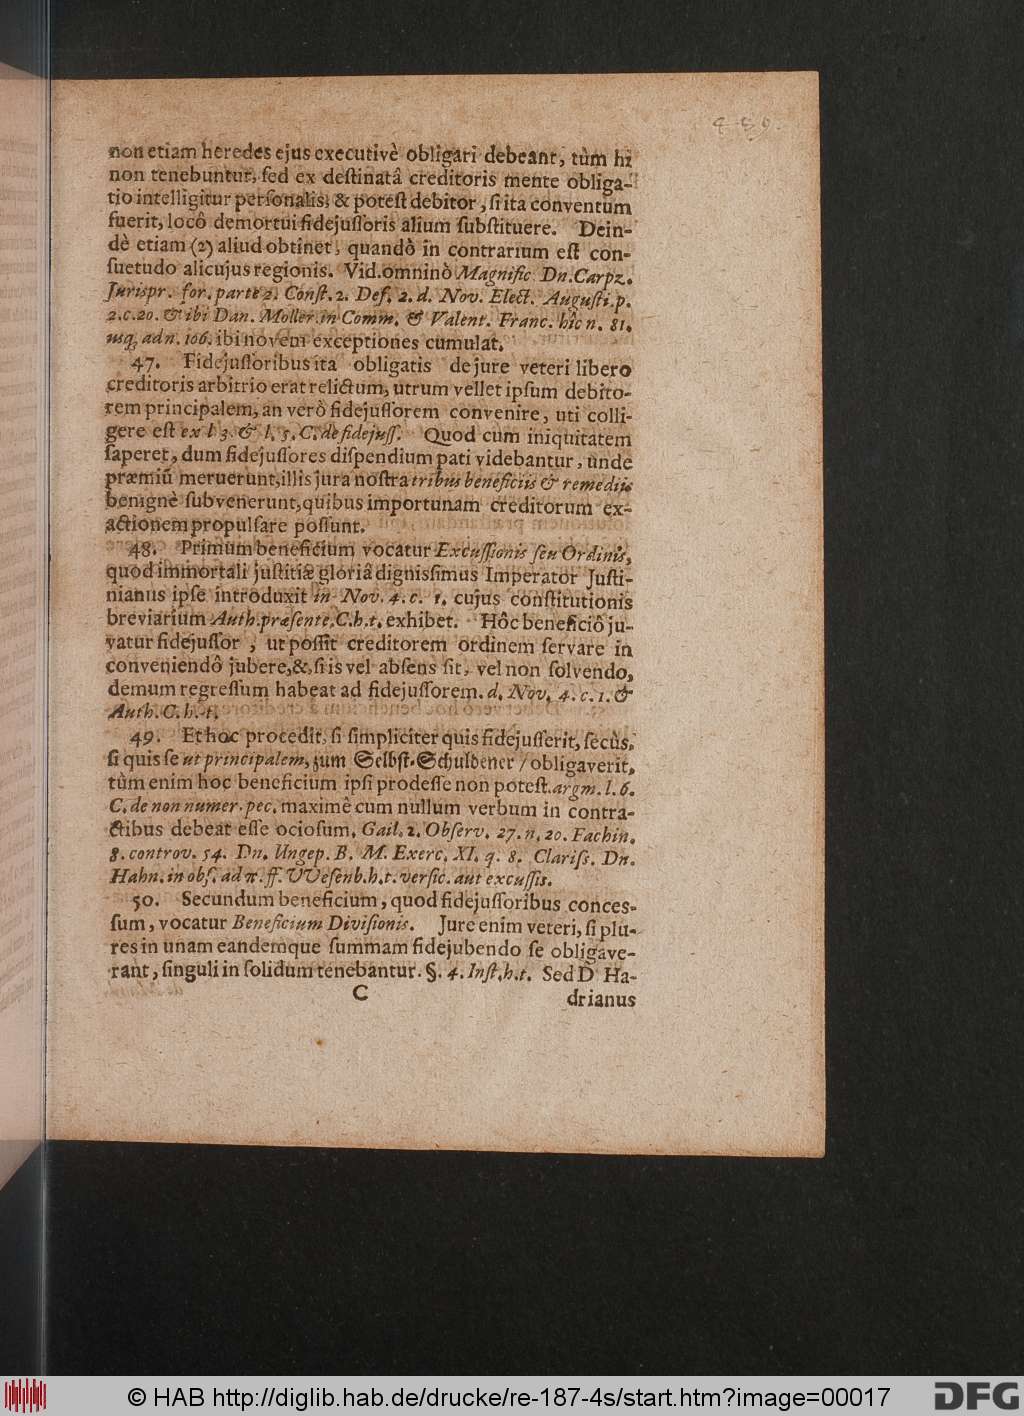 non etiam heredes ejus executivè obligari debeant, tùm hi
non tenebuntur, ſed ex deſtinatâ creditoris mente obliga-
tio intelligitur perſonalis; & poteſt debitor, ſi ita conventum
fuerit, locô demortui fidejuſſoris alium ſubſtituere. Dein-
dè etiam (2) aliud obtinet, quandò in contrarium eſt con-
ſuetudo alicujus regionis. Vid. omninò Magnific. Dn. Carpz.
Jurispr. for. parte 2. Conſt. 2. Def. 2. d. Nov. Elect. Auguſti. p.
2. c. 20. & ibi Dan. Moller. in Comm. & Valent. Franc. hîc n. 81.
usq; ad n. 106. ibi novem exceptiones cumulat.
47. Fidejuſſoribus ita obligatis de jure veteri libero
creditoris arbitrio erat relictum, utrum vellet ipſum debito-
rem principalem, an verò fidejuſſorem convenire, uti colli-
gere eſt ex l 3. & l. 5. C. de fidejuſſ. Quod cum iniquitatem
ſaperet, dum fidejuſſores diſpendium pati videbantur, unde
præmiũ meruerunt, illis jura noſtra tribus beneficiis & remediis
benignè ſubvenerunt, quibus importunam creditorum ex-
actionem propulſare poſſunt.
48. Primum beneficium vocatur Excuſſionis ſeu Ordinis,
quod immortali juſtitiæ gloriâ digniſſimus Imperator Juſti-
nianus ipſe introduxit in Nov. 4. c. 1. cujus conſtitutionis
breviarium Auth. præſente. C. h. t. exhibet. Hôc beneficiô ju-
vatur fidejuſſor, ut poſſit creditorem ordinem ſervare in
conveniendô jubere, &, ſi is vel abſens ſit, vel non ſolvendo,
demum regreſſum habeat ad fidejuſſorem. d. Nov. 4. c. 1. &
Auth. C. h. t.
49. Et hoc procedit, ſi ſimpliciter quis fidejuſſerit, ſecùs,
ſi quis ſe ut principalem, zum Selbſt-Schuldener / obligaverit,
tùm enim hoc beneficium ipſi prodeſſe non poteſt. argm. l. 6.
C. de non numer. pec. maximê cum nullum verbum in contra-
ctibus debeat eſſe ocioſum. Gail. 2. Obſerv. 27. n. 20. Fachin.
8. controv. 54. Dn. Ungep. B. M. Exerc. XI. q. 8. Clariſs. Dn.
Hahn. in obſ. ad π. ff. VVeſenb. h. t. verſic. aut excuſſis.
50. Secundum beneficium, quod fidejuſſoribus conces-
ſum, vocatur Beneficium Diviſionis. Jure enim veteri, ſi plu-
res in unam eandemque ſummam fidejubendo ſe obligave-
rant, ſinguli in ſolidum tenebantur. §. 4. Inſt. h. t. Sed D Ha-
C drianus
© HAB http://diglib.hab.de/drucke/re-187-4s/start.htm?image=00017 DFG